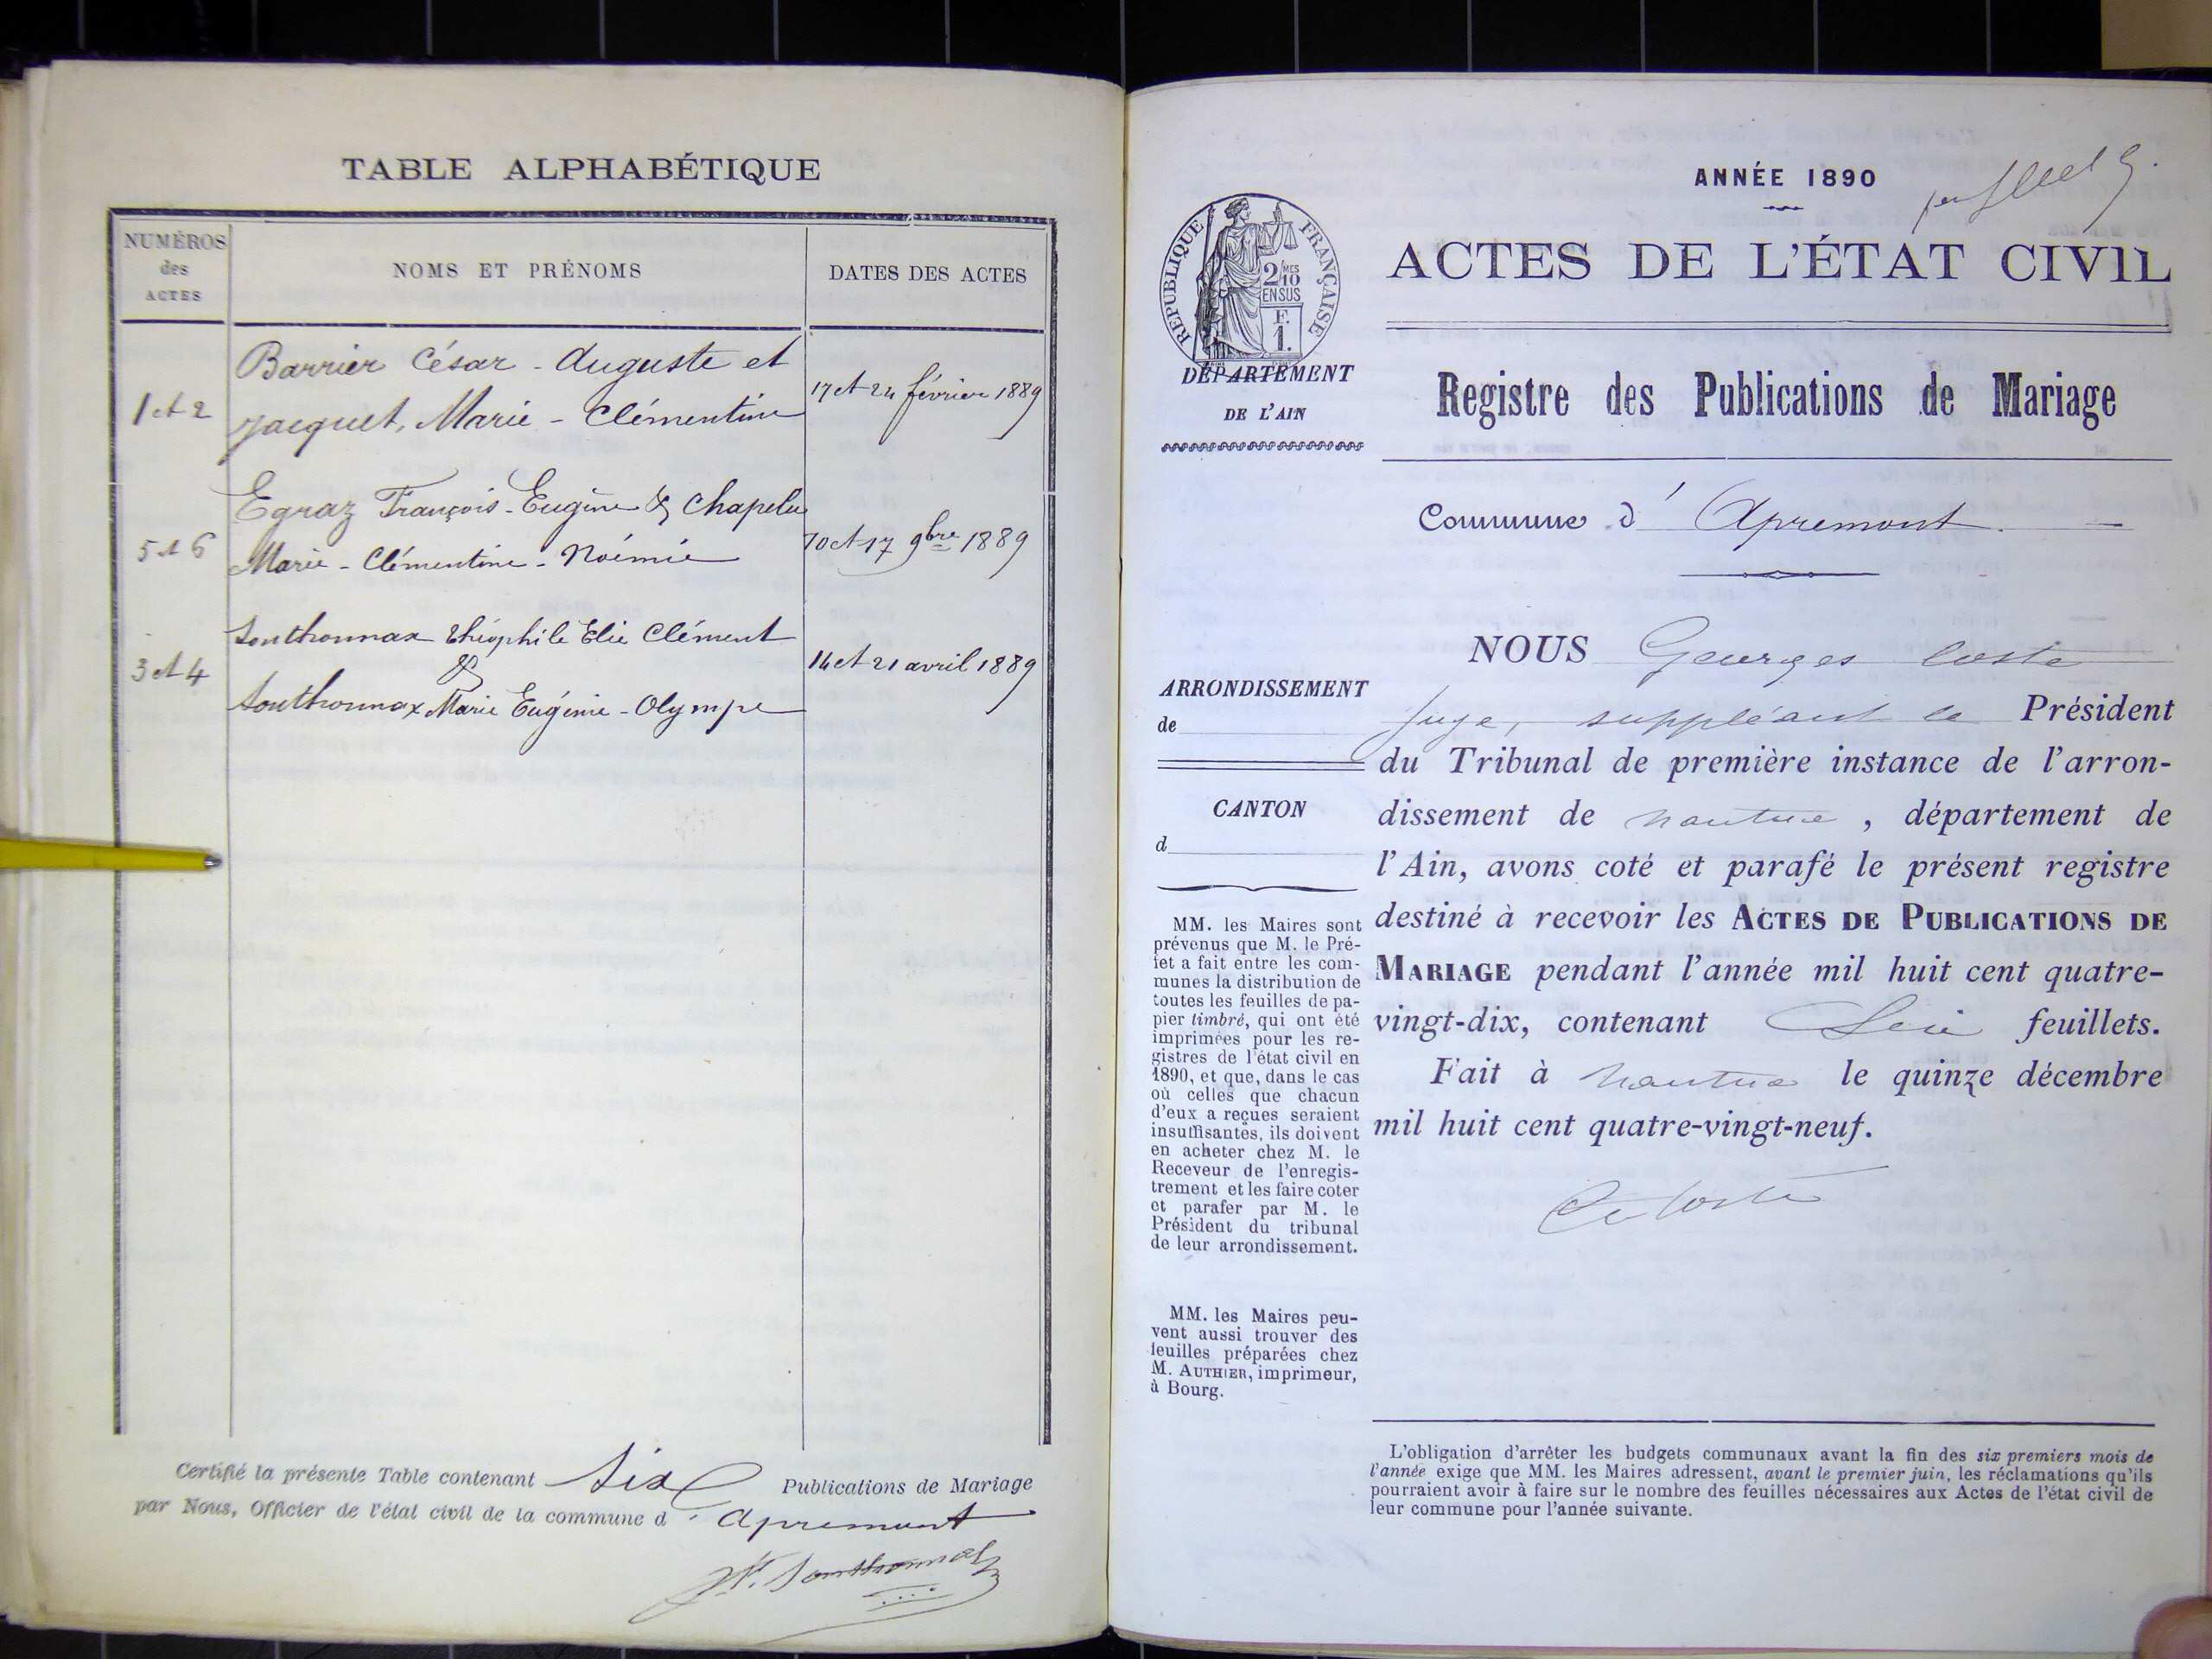 TABLE ALPHABÉTIQUE
NUMÉROS
des
ACTES
NOMS ET PRÉNOMS
DATES DES ACTES
1 et 2
Barrier César - Auguste et
Jacquet, Marie - Clémentine
17 et 24 février 1889
5 et 6
Egraz François - Eugène & Chapelu
Marie - Clémentine - Noémie
10 et 17 9bre 1889
3 et 4
Sonthonnax Théophile Elie Clément
&
Sonthonnax Marie Eugénie - Olympe
14 et 21 avril 1889
Certifié la présente Table contenant six Publications de Mariage
par Nous, Officier de l'état civil de la commune d'Apremont
Sonthonnax
ANNÉE 1890
RÉPUBLIQUE FRANÇAISE
2/10 MES
EN SUS
F.
1.
ACTES DE L'ÉTAT CIVIL
DÉPARTEMENT
DE L'AIN
Registre des Publications de Mariage
Commune d'Apremont
NOUS Georges Coste
juge, suppléant le Président
du Tribunal de première instance de l'arron-
dissement de Nantua, département de
l'Ain, avons coté et parafé le présent registre
destiné à recevoir les ACTES DE PUBLICATIONS DE
MARIAGE pendant l'année mil huit cent quatre-
vingt-dix, contenant feuillets.
Fait à Nantua le quinze décembre
mil huit cent quatre-vingt-neuf.
Coste
ARRONDISSEMENT
de
CANTON
d
MM. les Maires sont
prévenus que M. le Pré-
fet a fait entre les com-
munes la distribution de
toutes les feuilles de pa-
pier timbré, qui ont été
imprimées pour les re-
gistres de l'état civil en
1890, et que, dans le cas
où celles que chacun
d'eux a reçues seraient
insuffisantes, ils doivent
en acheter chez M. le
Receveur de l'enregis-
trement et les faire coter
et parafer par M. le
Président du tribunal
de leur arrondissement.
MM. les Maires peu-
vent aussi trouver des
feuilles préparées chez
M. AUTHIER, imprimeur,
à Bourg.
L'obligation d'arrêter les budgets communaux avant la fin des six premiers mois de
l'année exige que MM. les Maires adressent, avant le premier juin, les réclamations qu'ils
pourraient avoir à faire sur le nombre des feuilles nécessaires aux Actes de l'état civil de
leur commune pour l'année suivante.